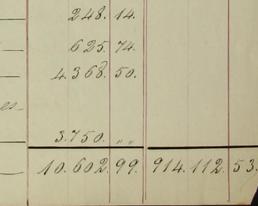 248. 14.
625. 74.
4.368. 50.
es
3.750. " "
10.602. 99. 914.112. 53.